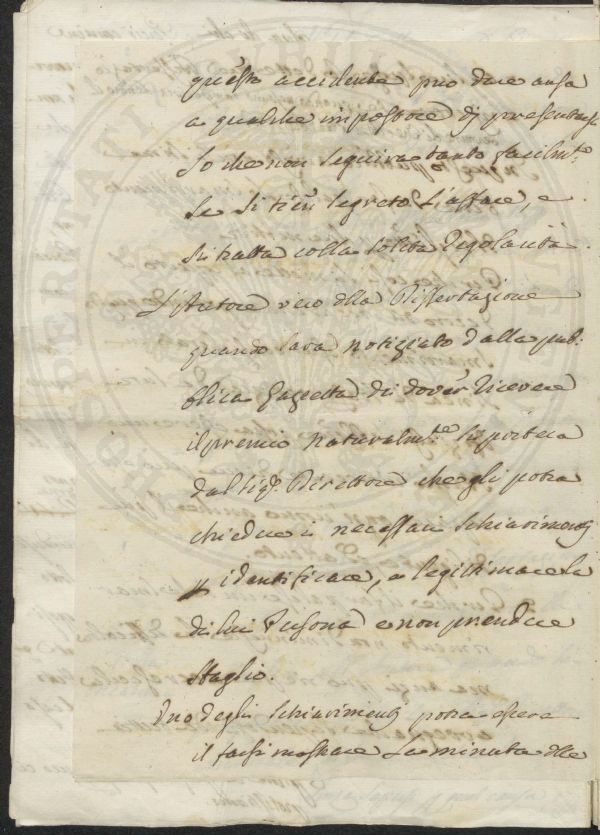 questo accidente può dare ansa
a qualche impostore di presentarsi
Lo che non seguirà tanto facilmte.
se si tien segreto l'affare, e
si tratta colla solita regolarità.
L'Autore vero della Dissertazione
quando sarà notiziato dalla pub:
blica Gazzetta di dover ricevere
il premio naturalmte. si porterà
dal Sigr. Direttore che gli potrà
chiedere i necessarj schiarimenti
p identificare, e legittimare la
di lui Persona e non prendere
sbaglio.
Uno degli schiarimenti potrà essere
il farsi mostrare la minuta della